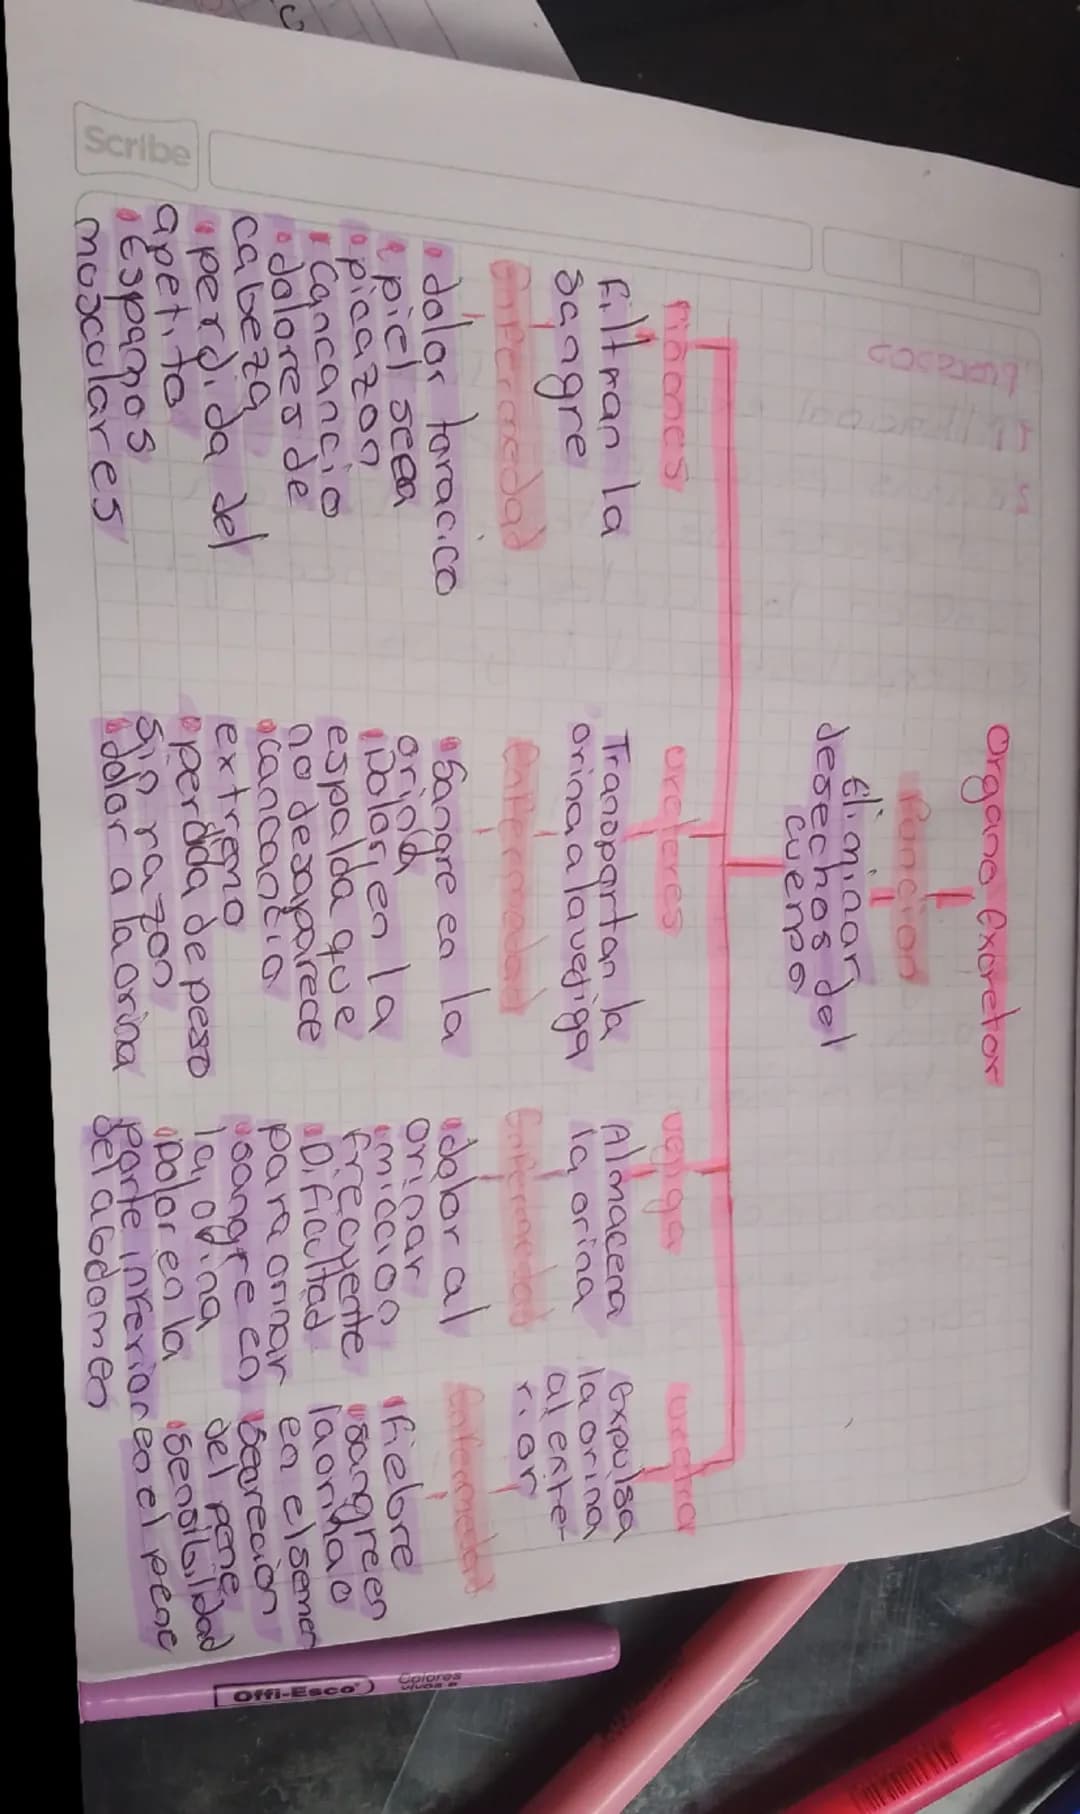 Scribe
Organo Excretor
función
Eliminar
desechos del
cuerpo
riñones
Filtran la
sangre
Enfermedad
dolor toracico
piel seca
picazon
Cancancio
dolores de
cabeza
perdida del
apetito
Espamos
mosculares
ureteres
Transportan la
orina a la vejiga
Enfermedad
Sangre en la
orina
Dolor en la
espalda que
no desaparece
cancancio
extremo
perdida de peso
sin razon
dolor a la orina
vejiga
Almacena
la orina
Enfermedad
dolor al
orinar
miccion
frecuente
Dificultad
para orinar
sangre en
la orina
Dolor en la
parte inferior
del abdomen
uretra
Expulsa
la orina
al exte-
rior
Enfermedad
Fiebre
sangre en
la orina o
en el semen
Secrecion
del pene
Sensibilidad
en el pene
Offi-Esco
Colores
vivos